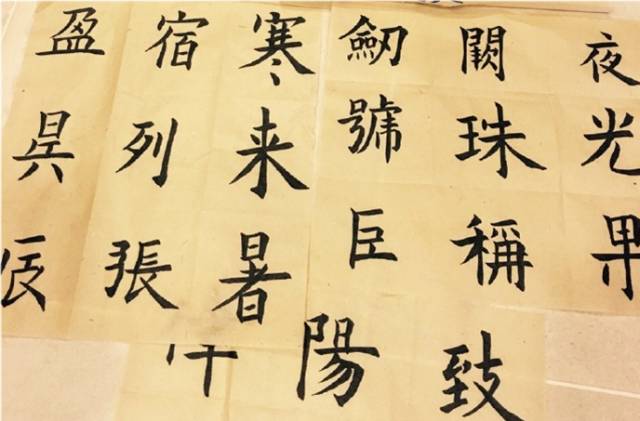 盈昃辰
宿列張
寒来暑
劒號巨
闕珠稱
夜光果
陽
致